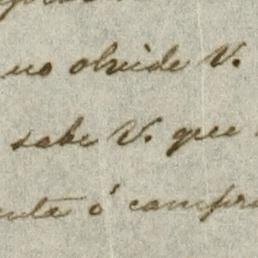 no olvide V.
sabe V. que
enta ó compr